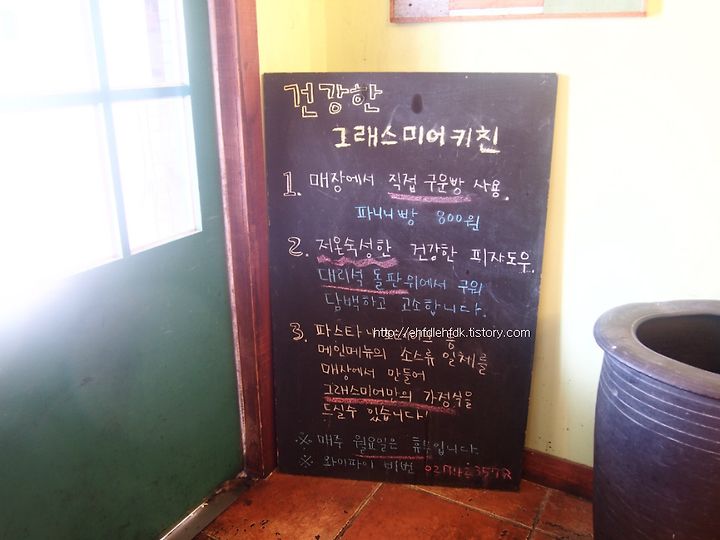 건강한
그래스미어키친
1. 매장에서 직접 구운빵 사용.
파니니빵 800원
2. 저온숙성한 건강한 피자도우.
대리석 돌판위에서 구워
담백하고 고소합니다.
3. 파스타
http://ehfdlehfdk.tistory.com
메인메뉴의 소스류 일체를
매장에서 만들어
그래스미어만의 가정식을
드실수 있습니다!
※ 매주 월요일은 휴무입니다.
※ 와이파이 비번